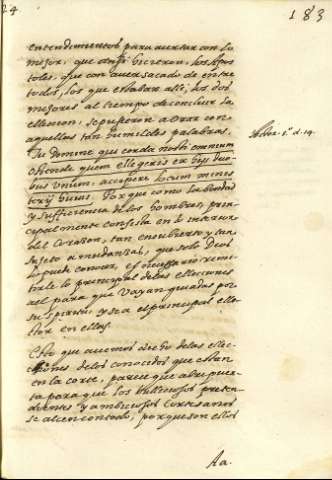 24
183
entendimientos para acertar con lo
mejor, que ansi hicieron, los Apos
toles, que con aver sacado de entre
todos, los que estaban alli, los dos
mejores al tiempo de concluir la
election, se pusieron a Orar con
aquellas tan humildes palabras.
Tu domine qui corda nosti omnium
Ostende quem elegeris ex his duo
bus unum, accipere locum minis
terij huius. Porque como la bondad
y sufficiencia de los hombres, prin
cipalmente consista en lo interior
del Corazon, tan encubierto y tan
sujeto a mudanzas, que solo Dios
lo puede conocer, es necesario remi
tirle lo principal de las elecciones
a el para que vayan guiadas por
su spiritu, y sea el principal ele
tor en ellas.
Esto que avemos dicho de las elec
ciones de los conocidos que estan
en la corte, parece que abre puer
ta para que los bulliciosos preten
dientes y ambiciosos cortesanos
se alcen con todo, porque son ellos
Aa.